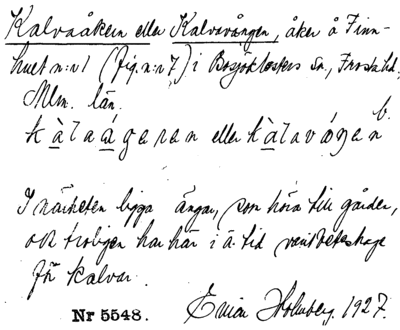 Kalvaåkern eller Kalvavången, åker å Finn-
huset n:r 1 (fig. n:r 7) i Bosjöklosters sn, Frosta hd,
Mlm. län.
kàlaágeran eller kàlavóŋen
I närheten ligga ängar, som höra till gården,
och troligen har här i ä. tid varit beteshage
för kalvar.
Nr 5548. Holmberg. 1927.